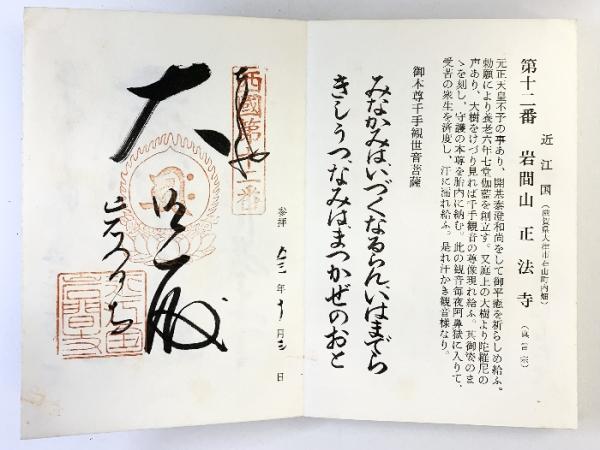 第十二番 岩間山 正法寺 (真言宗)
近江国 (滋賀県大津市石山町内畑)
元正天皇不予の事あり、開基泰澄和尚をして御平癒を祈らしめ給ふ。
勅願により養老六年七堂伽藍を創立す。又庭上の大樹より陀羅尼の
声あり、大樹をけづり見れば千手観音の尊像現れ給ふ。其御姿のま
ゝを刻し、守護の本尊を胎内に納む。此の観音毎夜阿鼻獄に入りて、
受苦の衆生を済度し、汗に濡れ給ふ。是れ汗かき観音様なり。
御本尊千手観世音菩薩
みなかみはいづくなるらんいはまでら
きしうつなみはまつかぜのおと
参拝 年十月 日
西國第十二番
大
岩間寺